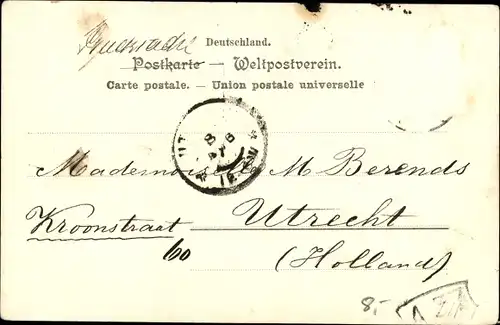 Drucksache Deutschland.
Postkarte — Weltpostverein.
Carte postale. — Union postale universelle
Mademoiselle M Berends
Kroonstraat Utrecht
60 (Holland)
8.-